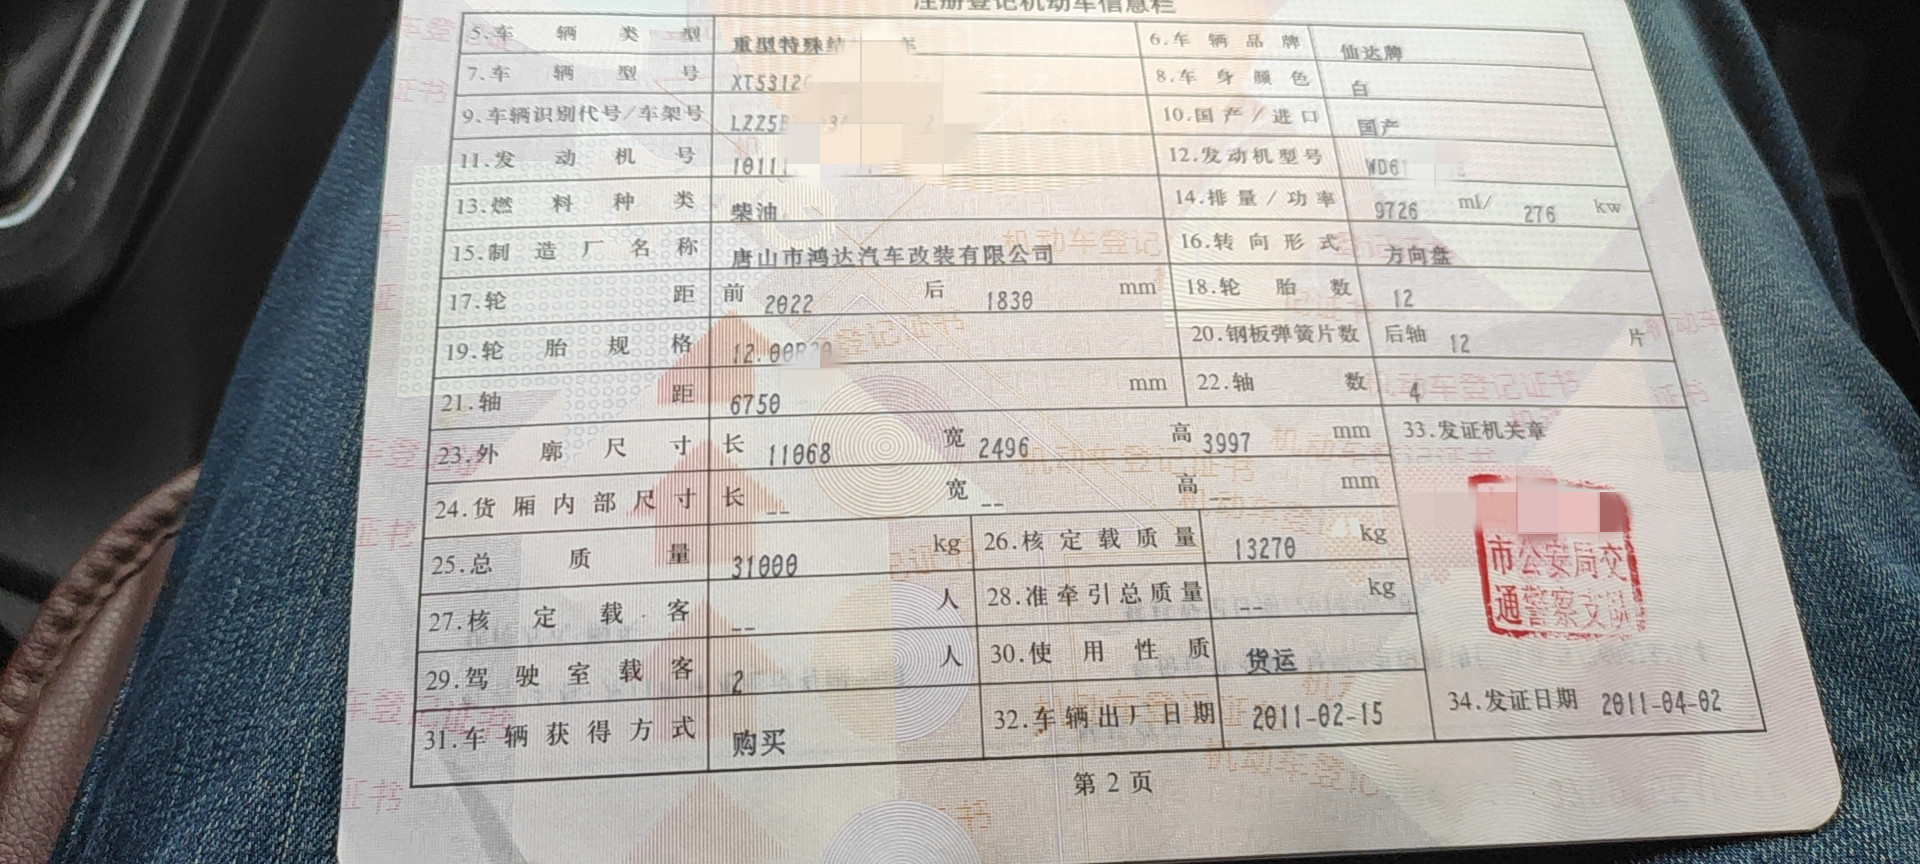 注册登记机动车信息栏
5.车辆类型 重型特殊结 6.车辆品牌 仙达牌
7.车辆型号 XT5312 8.车身颜色 白
9.车辆识别代号/车架号 LZZ5 10.国产/进口 国产
11.发动机号 1011 12.发动机型号 WD6
13.燃料种类 柴油 14.排量/功率 9726 ml/ 276 kw
15.制造厂名称 唐山市鸿达汽车改装有限公司 16.转向形式 方向盘
17.轮距 前 2022 后 1830 mm 18.轮胎数 12
19.轮胎规格 12.00R20 20.钢板弹簧片数 后轴 12 片
21.轴距 6750 mm 22.轴数 4
23.外廓尺寸 长 11068 宽 2496 高 3997 mm 33.发证机关章
24.货厢内部尺寸 长 -- 宽 -- 高 -- mm
25.总质量 31000 kg 26.核定载质量 13270 kg
市公安局交
通警察支队
27.核定载客 -- 人 28.准牵引总质量 -- kg
29.驾驶室载客 2 人 30.使用性质 货运
31.车辆获得方式 购买 32.车辆出厂日期 2011-02-15 34.发证日期 2011-04-02
第2页